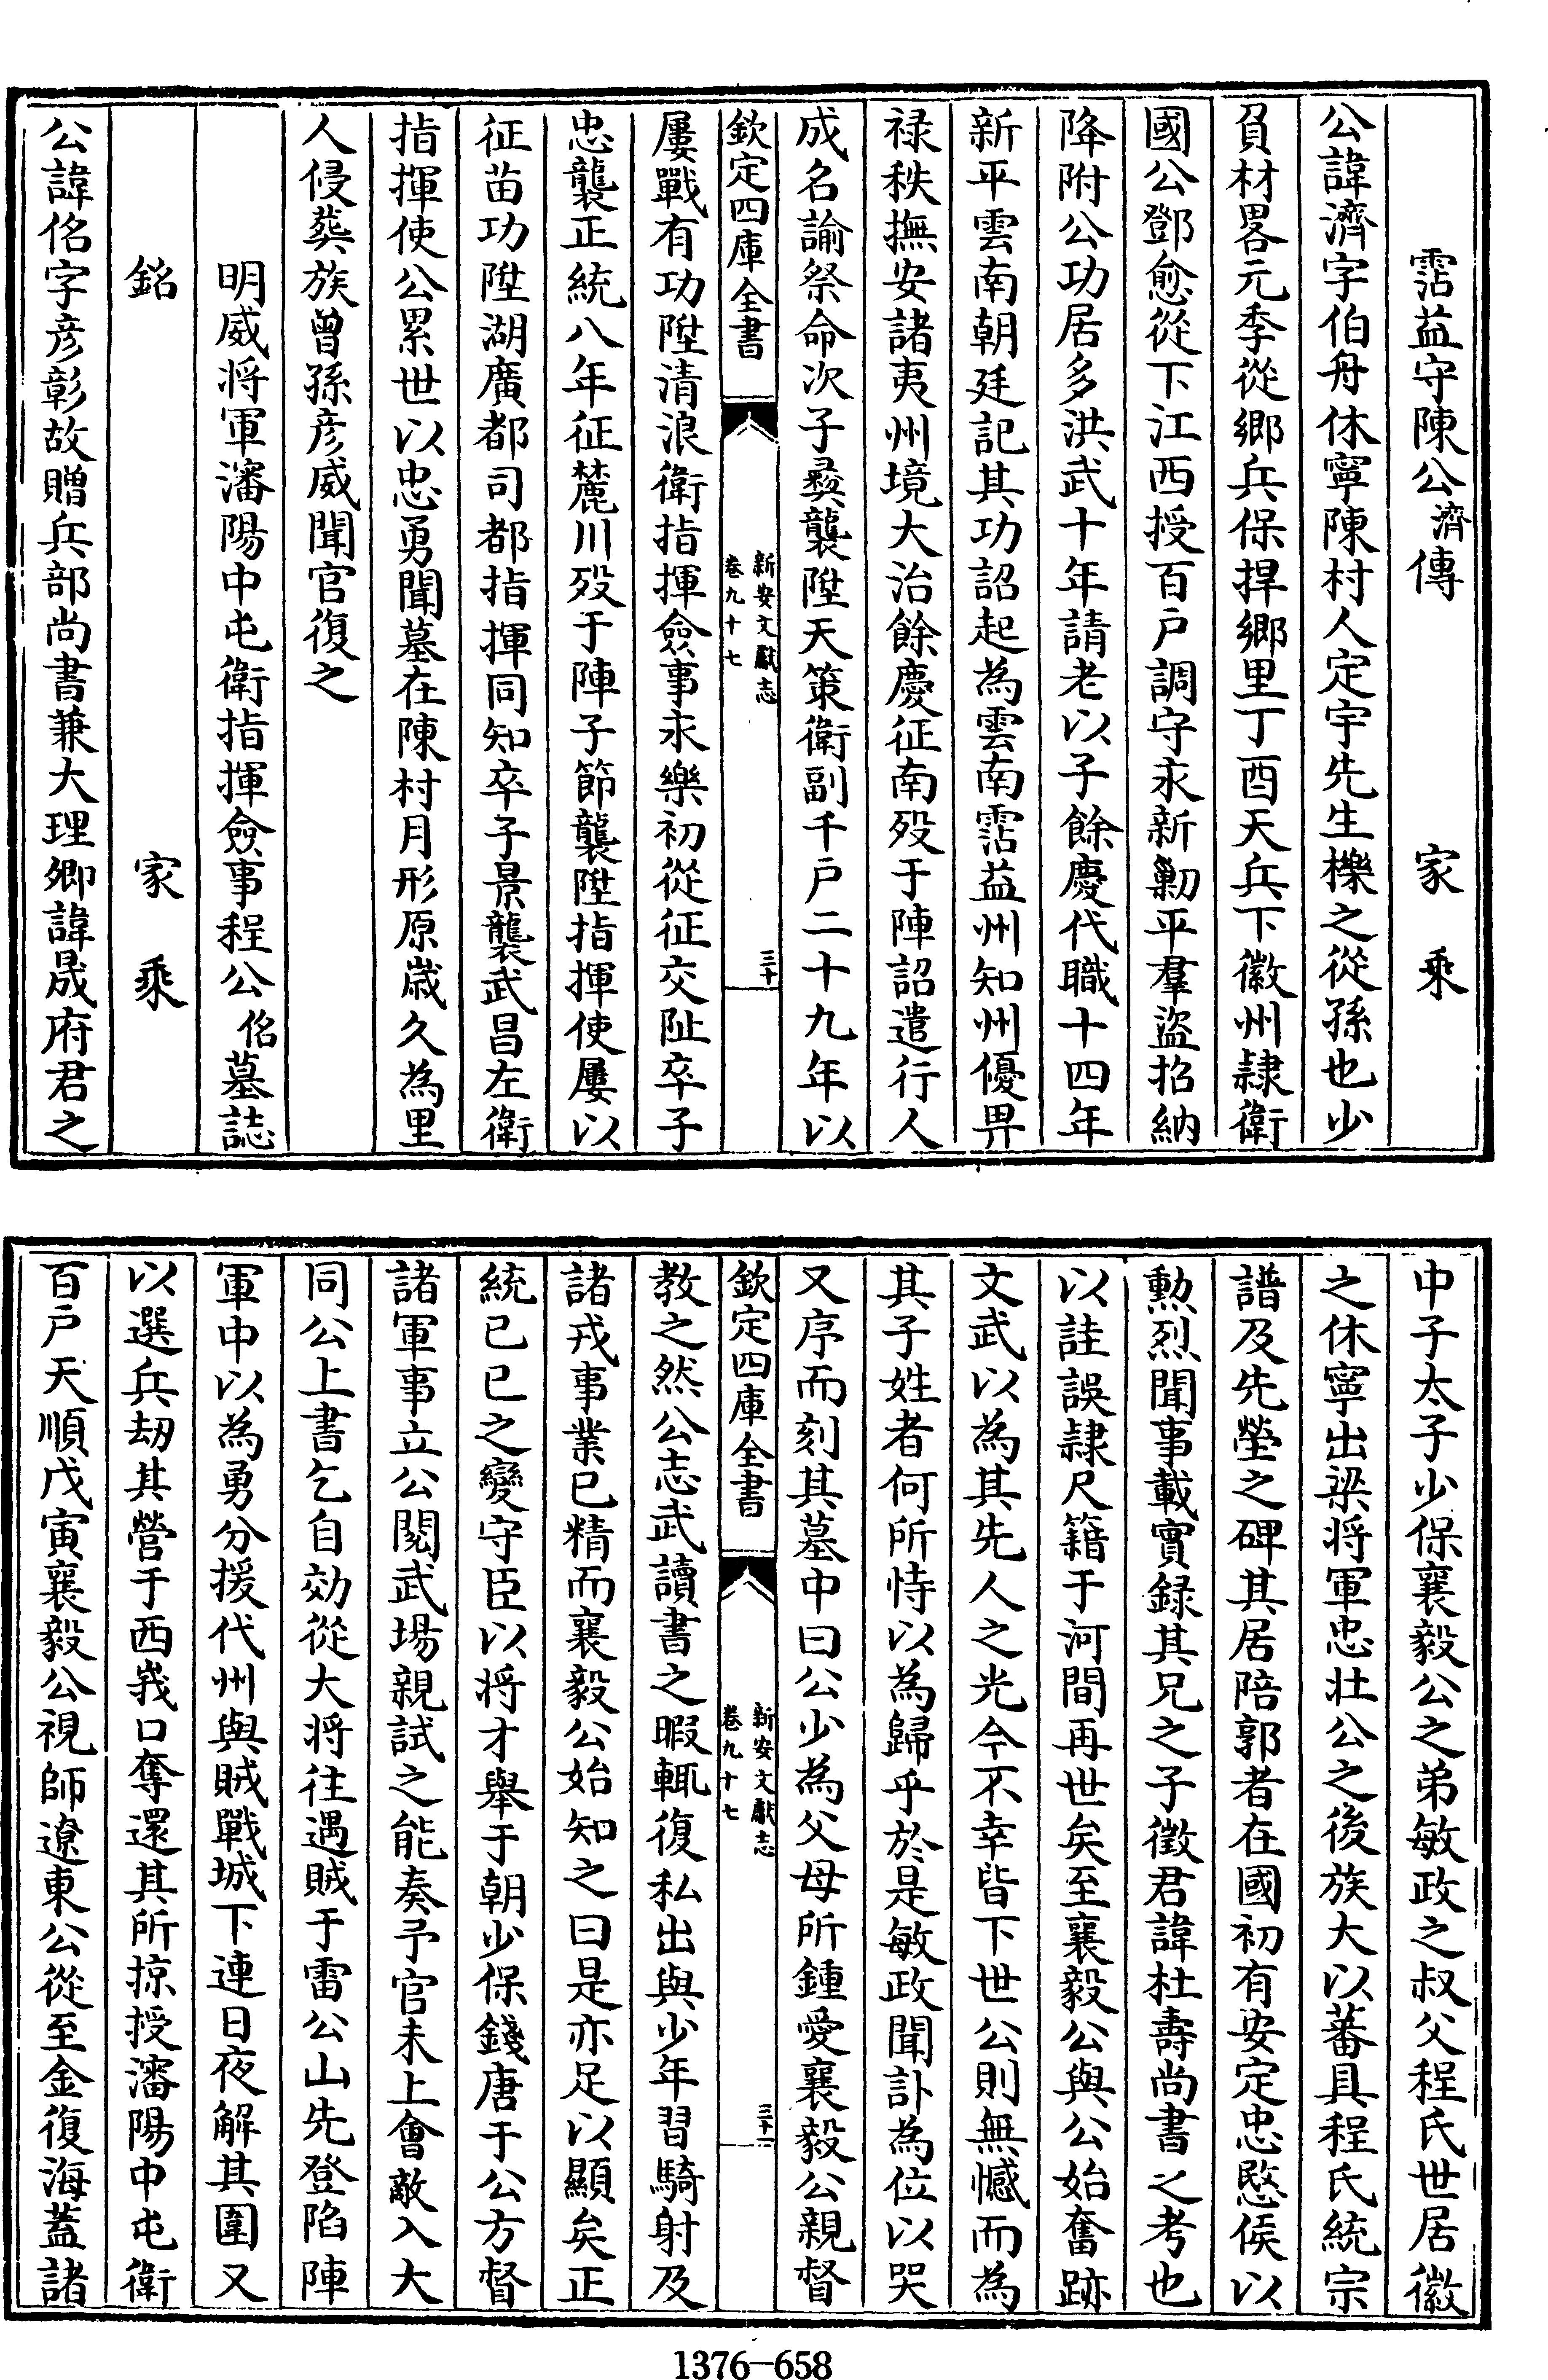 霑益守陳公濟傳 家乘
公諱濟字伯舟休寧陳村人定宇先生櫟之從孫也少
負材畧元季從鄉兵保捍鄉里丁酉天兵下徽州隷衛
國公鄧愈從下江西授百户調守永新勦平羣盜招納
降附公功居多洪武十年請老以子餘慶代職十四年
新平雲南朝廷記其功詔起為雲南霑益州知州優畀
禄秩撫安諸夷州境大治餘慶征南殁于陣詔遣行人
成名諭祭命次子彛襲陞天策衛副千戸二十九年以
欽定四庫全書
新安文獻志
卷九十七
三十
屢戰有功陞清浪衛指揮僉事永樂初從征交阯卒子
忠襲正統八年征麓川殁于陣子節襲陞指揮使屢以
征苗功陞湖廣都司都指揮同知卒子景襲武昌左衛
指揮使公累世以忠勇聞墓在陳村月形原嵗久為里
人侵葬族曾孫彦威聞官復之
明威將軍瀋陽中屯衛指揮僉事程公佲墓誌
銘 家乘
公諱佲字彦彰故贈兵部尚書兼大理卿諱晟府君之
中子太子少保襄毅公之弟敏政之叔父程氏世居徽
之休寧出梁将軍忠壮公之後族大以蕃具程氏統宗
譜及先塋之碑其居陪郭者在國初有安定忠愍侯以
勲烈聞事載實録其兄之子徵君諱杜壽尚書之考也
以詿誤隷尺籍于河間再世矣至襄毅公與公始奮跡
文武以為其先人之光今不幸皆下世公則無憾而為
其子姓者何所恃以為歸乎於是敏政聞訃為位以哭
又序而刻其墓中曰公少為父母所鍾愛襄毅公親督
欽定四庫全書
新安文獻志
卷九十七
三十一
教之然公志武讀書之暇輒復私出與少年習騎射及
諸戎事業已精而襄毅公始知之曰是亦足以顯矣正
統己巳之變守臣以将才舉于朝少保錢唐于公方督
諸軍事立公閱武場親試之能奏予官未上會敵入大
同公上書乞自効從大将往遇賊于雷公山先登陷陣
軍中以為勇分援代州與賊戰城下連日夜解其圍又
以選兵刼其營于西峩口奪還其所掠授瀋陽中屯衛
百戸天順戊寅襄毅公視師遼東公從至金復海蓋諸
1376-658